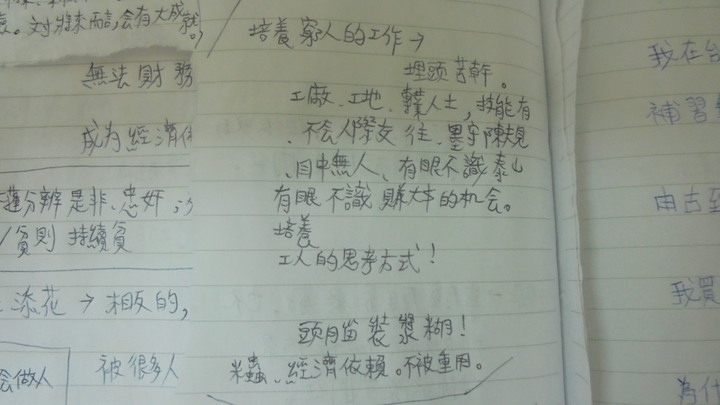 对將來而言,会有大成就。
無法財務
成为經濟
分辨是非、忠奸;
貧則 持續貧
添花→相反的,
会做人
被很多人
培養窮人的工作→
埋頭苦幹。
工廠、工地、業人士,技能有
、不会人際交往、墨守陳規
、目中無人、有眼不識泰山
有眼不識賺大本的机会。
培養
工人的思考方式!
頭腦裝漿糊!
米蟲、經濟依賴。不被重用。
我在台
補習
由古至
我買
為什